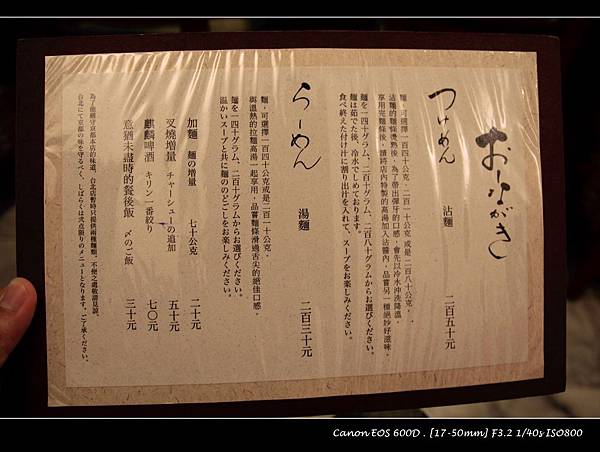 おしながき
つけめん 沾麵 二百五十元
麵，可選擇一百四十公克，二百一十公克，或是二百八十公克，
沾麵的麵條燙熟後，為了帶出彈牙的口感，會先以冷水沖洗降溫，
享用完麵條後，請將店內特製的高湯加入沾醬內，品嘗另一種絕妙好滋味。
麵を一四十グラム、二百十グラム、二百八十グラムからお選びください。
麺は茹でた後、冷水でしめております。
食べ終えた付け汁に割り出汁を入れて、スープをお楽しみください。
らーめん 湯麵 二百三十元
麵，可選擇一百四十公克或是二百一十公克，
與溫熱的拉麵高湯一起享用，品嘗麵條滑過舌尖的絕佳口感。
麵を一四十グラム、二百十グラムからお選びください。
温かいスープと共に麺ののどごしをお楽しみください。
加麵 麺の増量 七十公克 二十元
叉燒增量 チャーシューの追加 五十元
麒麟啤酒 キリン一番絞り 七〇元
意猶未盡時的餐後飯 〆のご飯 三十元
為了能嚴守京都本店的味道，台北店暫時只提供兩種麵類。不便之處敬請見諒。
台北にて京都の味を守るべく、しばらくは弐点限りのメニューとなります。ご了承ください。
Canon EOS 600D . [17-50mm] F3.2 1/40s ISO800